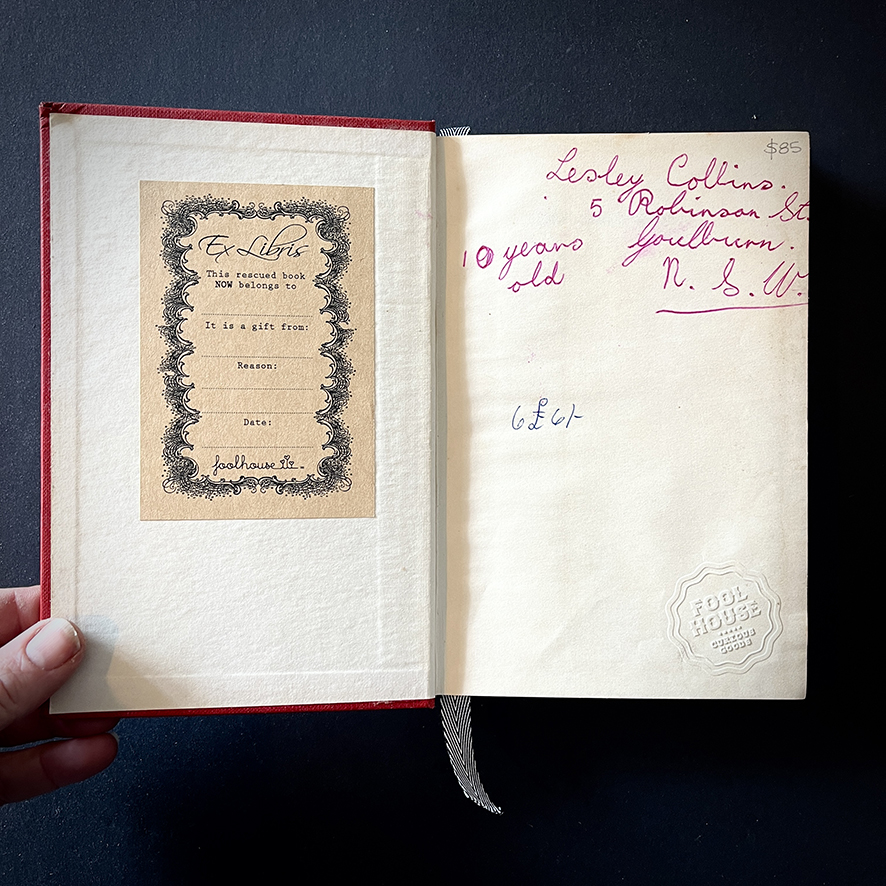 Ex Libris
This rescued book
NOW belongs to
It is a gift from:
Reason:
Date:
foolhouse
$85
Lesley Collins.
5 Robinson St.
10 years Goulburn.
old N. S. W.
6£6/-
FOOL
HOUSE
CURIOUS
GOODS